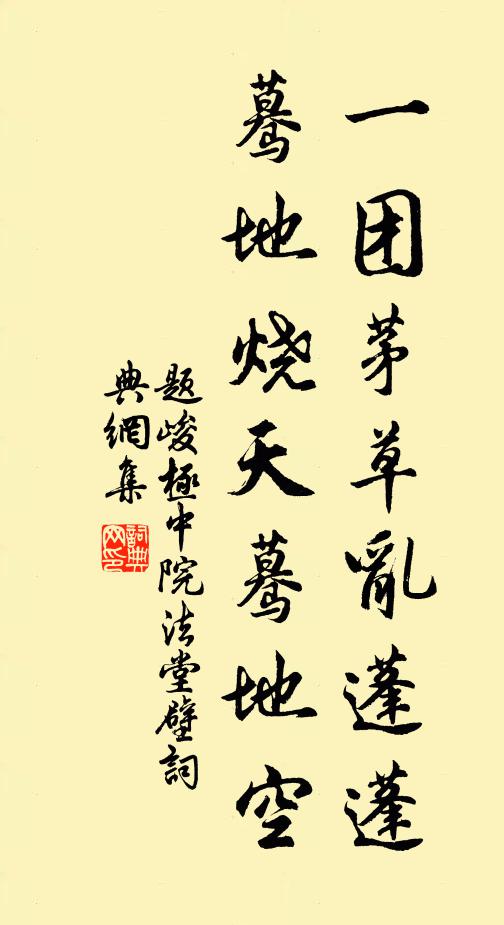 一团茅草亂蓬蓬
蓦地烧天蓦地空
题峻極中院法堂壁詞
典網集
詞典
网印